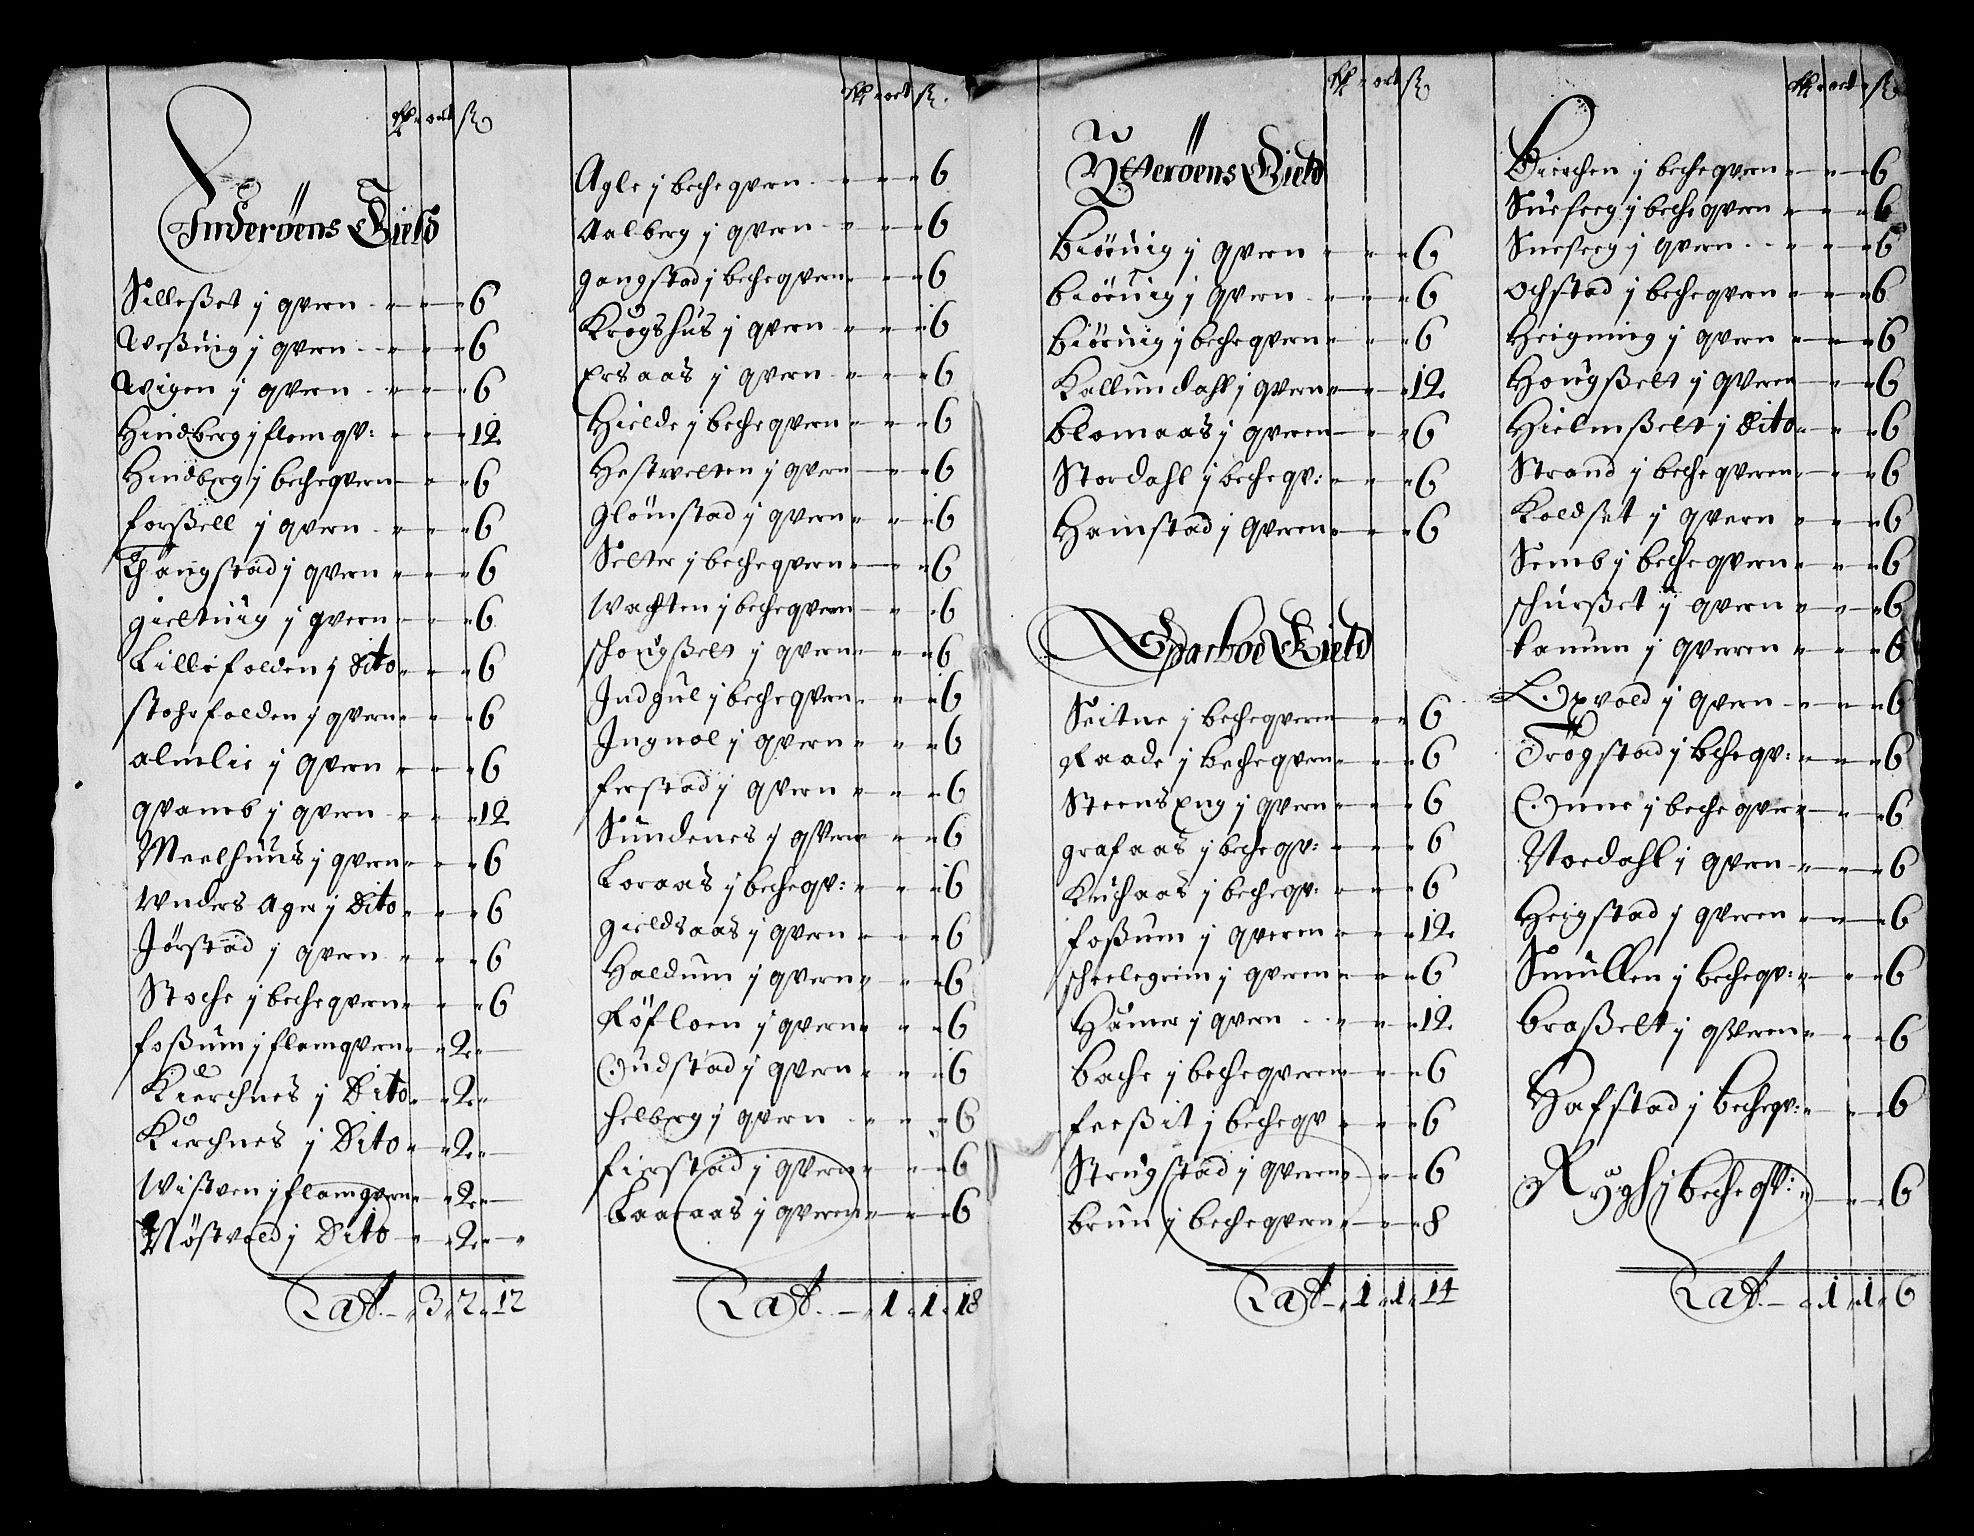 ort
Inderöens Gield
Silleßet j qvern - - - 6
Weßuig j qvern - - - 6
Wigen j qvern - - - 6
Hindberg j flomqv: - - - 12
Hindberg j becheqvern - - - 6
forßell j qvern - - - 6
Thangstad j qvern - - - 6
gieltuig j qvern - - - 6
Lillefolden j Dito - - - 6
stohrfolden j qvern - - - 6
almlie j qvern - - - 6
qvamb j qvern - - - 12
Meelhuus j qvern - - - 6
Wnders Ager j Dito - - - 6
Jörstad j qvern - - - 6
Stoche j becheqvern - - - 6
foßum j flomqvern - - 2 -
Kierchnes j Dito - - 2 -
Kirchnes j Dito - - 2 -
Wisten j flomqvern - - 2 -
Nöstvold j Dito - - 2 - -
Lat. - 3. 2. 12
ort
Agle j bechqvern - - - 6
Aalberg j qvern - - - 6
gangstad j bechqvern - - - 6
Krogshus j qvern - - - 6
Ersaas j qvern - - - 6
Hielde j bechqvern - - - 6
Hestvelten j qvern - - - 6
Glömstad j qvern - - - 6
Selter j bechqvern - - - 6
Wachten j bechqvern - - - 6
schougßelt j qvern - - - 6
Indgul j bechqvern - - - 6
Ingnol j qvern - - - 6
ferstad j qvern - - - 6
Sundenes j qvern - - - 6
Loraas j bechqv: - - - 6
gieldsaas j qvern - - - 6
Haldum j qvern - - - 6
Röfloen j qvern - - - 6
Oudstad j qvern - - - 6
helberg j qvern - - - 6
fierstad j qvern - - - 6
Laaraas j qvern - - - 6
Lat. - 1. 1. 18
ort
Ytteröens Gield
biörnig j qvern - - - 6
biörnig j qvern - - - 6
biörnig j bechqvern - - - 6
Kallundahl j qvern - - - 12
blomaas j qvern - - - 6
Stordahl j bechqv: - - - 6
Hamstad j qvern - - - 6
Sparboe Gield
Seitne j bechqvern - - - 6
Raade j bechqvern - - - 6
Steens Eng j qvern - - - 6
grafaas j bechqv: - - - 6
Kirchaas j bechqv: - - - 6
foßum j qvern - - - 12
scheelegrim j qvern - - - 6
Hamer j qvern - - - 12
bache j bechqvern - - - 6
freßit j bechqv - - - 6
Strugstad j qvern - - - 6
brun j bechqvern - - - 8
Lat - 1. 1. 14
ort
Bierchen j bechqvern - - - 6
Sneseeg j bechqvern - - - 6
Sneseeg j qvern - - - 6
Ochstad j bechqvern - - - 6
Heigning j qvern - - - 6
Hougßelt j qvern - - - 6
Hielmßelt j Dito - - - 6
Strand j bechqvern - - - 6
Koldset j qvern - - - 6
Semb j bechqvern - - - 6
schurßet j qvern - - - 6
kanum j qvern - - - 6
Opvold j qvern - - - 6
Trögstad j bcheqv: - - - 6
Onne j bechqvern - - - 6
Nordahl j qvern - - - 6
Heigstad j qvern - - - 6
Smullen j bechqv: - - - 6
braßelt j qvern - - - 6
Hafstad j bechqv: - - - 6
Rygh j bechqv: - - - 6
Lat. - 1. 1. 6